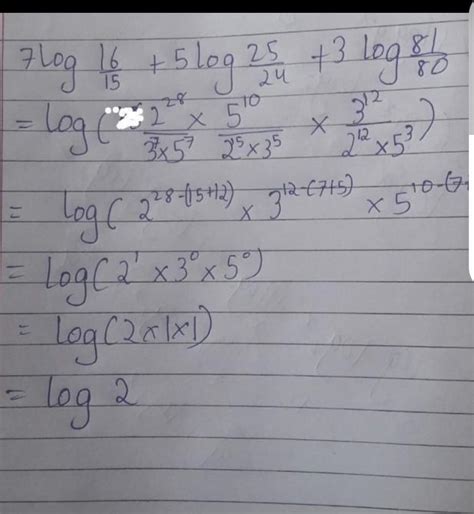 7log 16/15 + 5log 25/24 + 3 log 81/80
= log( 2^28/3^7×5^7 × 5^10/2^5×3^5 × 3^12/2^12×5^3 )
= log( 2^28-(15+12) × 3^12-(7+5) × 5^10-(7+
= log( 2^1 × 3^0 × 5^0 )
= log(2×1×1)
= log 2